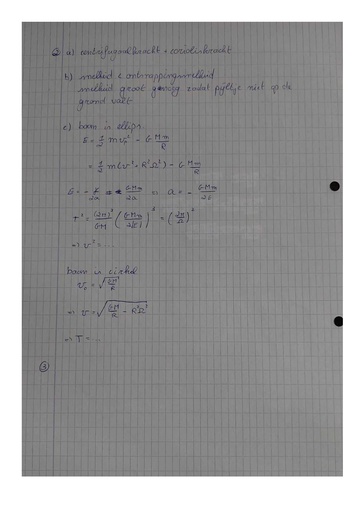 ② a) centrifugaalkracht + corioliskracht
b) snelheid < ontsnappingssnelheid
snelheid groot genoeg zodat pijltje niet op de
grond valt
c) baan is ellips
E = 1/2 m v₀² - G Mm/R
= 1/2 m (v² + R²Ω²) - G Mm/R
E = - GMm/2a ⇒ a = - GMm/2E
T² = (2π)²/GM (GMm/2|E|)³ = (2π/Ω)²
⇒ v² = ...
baan is cirkel
v₀ = √(GM/R)
⇒ v = √(GM/R - R²Ω²)
⇒ T = ...
③